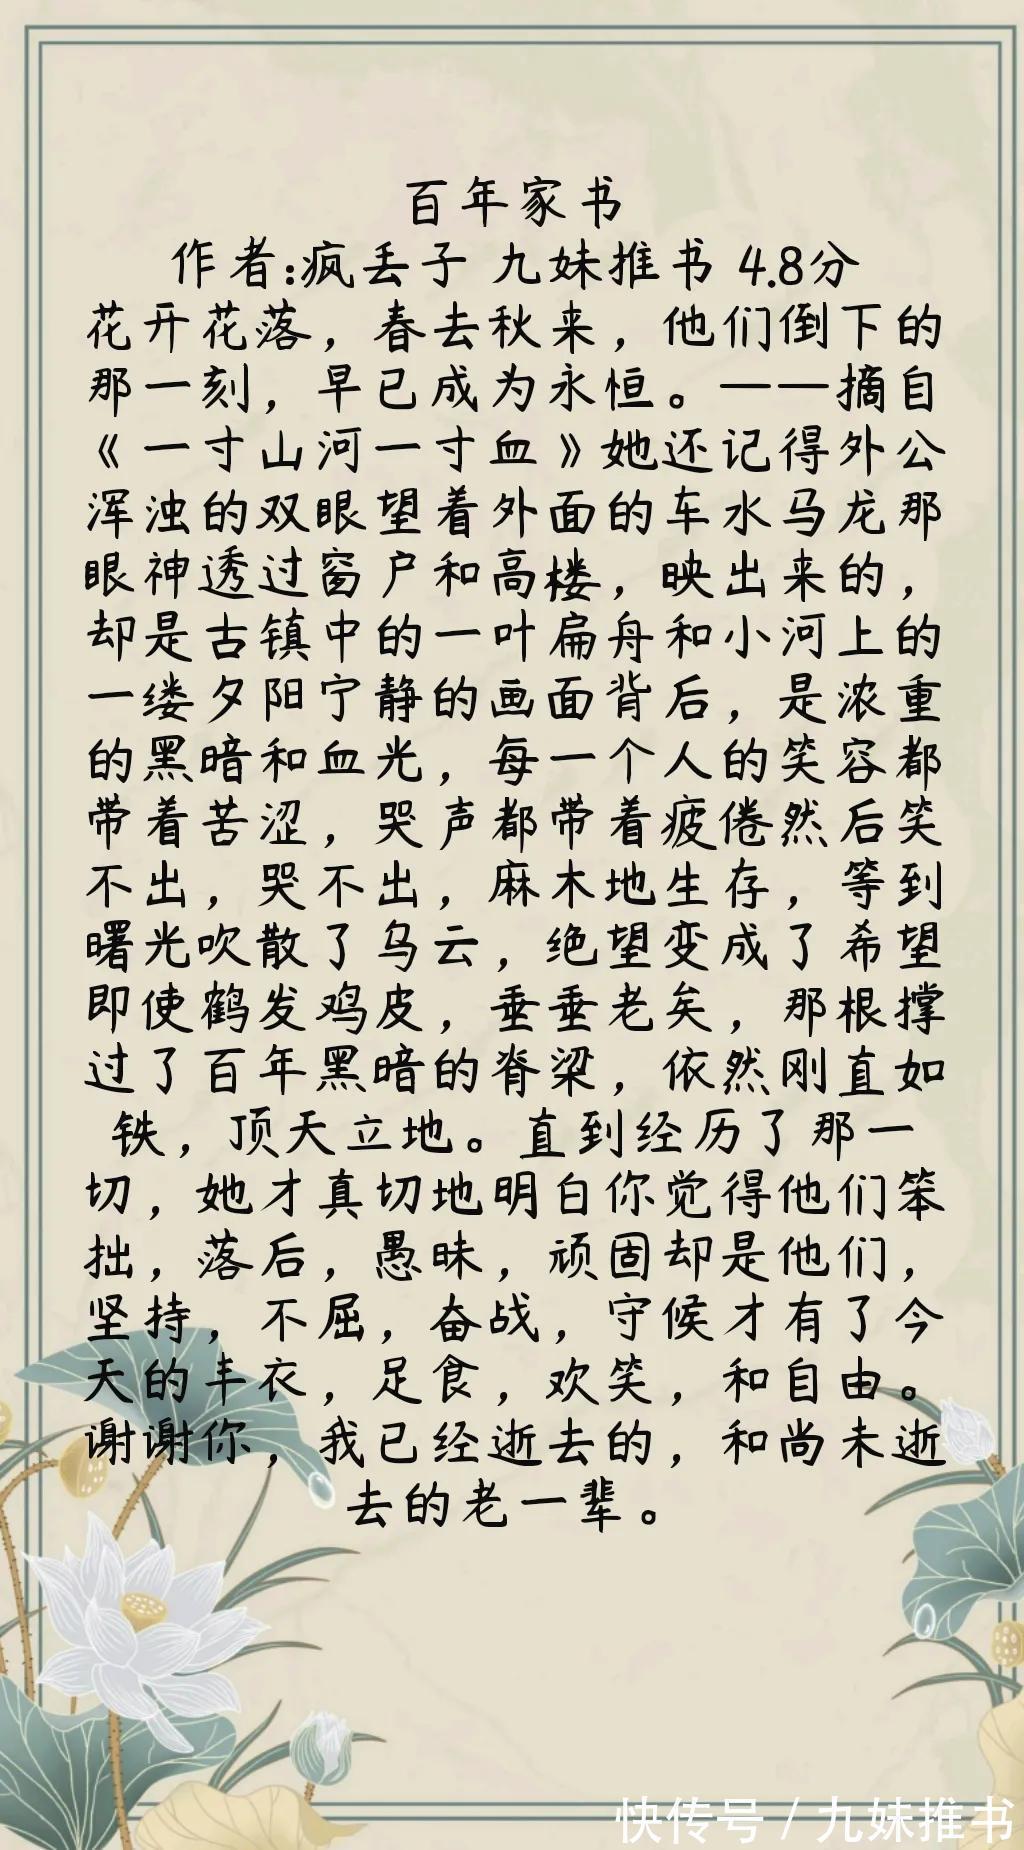 百年家书
作者:疯丢子 九妹推书 4.8分
花开花落，春去秋来，他们倒下的
那一刻，早已成为永恒。——摘自
《一寸山河一寸血》她还记得外公
浑浊的双眼望着外面的车水马龙那
眼神透过窗户和高楼，映出来的，
却是古镇中的一叶扁舟和小河上的
一缕夕阳宁静的画面背后，是浓重
的黑暗和血光，每一个人的笑容都
带着苦涩，哭声都带着疲倦然后笑
不出，哭不出，麻木地生存，等到
曙光吹散了乌云，绝望变成了希望
即使鹤发鸡皮，垂垂老矣，那根撑
过了百年黑暗的脊梁，依然刚直如
铁，顶天立地。直到经历了那一
切，她才真切地明白你觉得他们笨
拙，落后，愚昧，顽固却是他们，
坚持，不屈，奋战，守候才有了今
天的丰衣，足食，欢笑，和自由。
谢谢你，我已经逝去的，和尚未逝
去的老一辈。
快传号 / 九妹推书